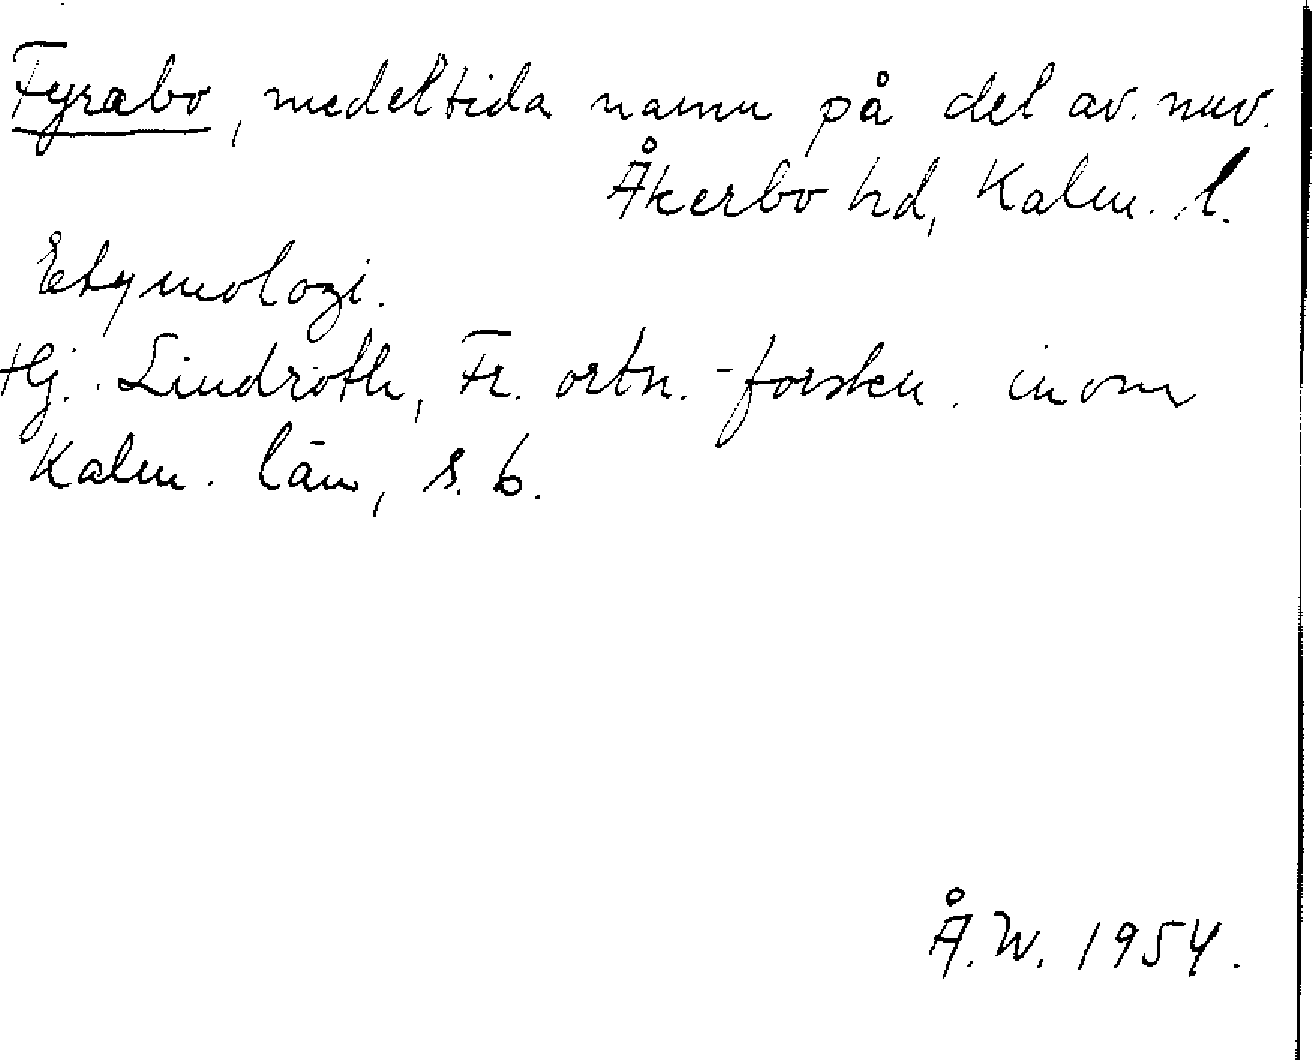 Fyrabo, medeltida namn på del av. nuv.
Åkerbo hd, Kalm. l.
Etymologi.
Hj. Lindroth, Fr. ortn.-forskn. inom
Kalm. län, s. 6.
Å.W. 1954.